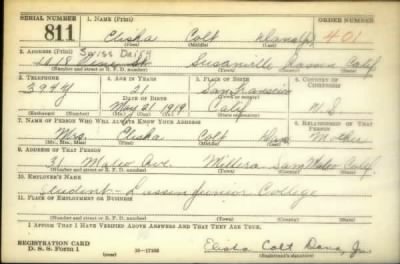 SERIAL NUMBER
1. NAME (Print)
ORDER NUMBER
811
Elisha Colt Dana Jr
401
(First) (Middle) (Last)
2. ADDRESS (Print)
Swiss Dairy
Susanville Lassen Calif
(Number and street or R. F. D. number) (Town) (County) (State)
3. TELEPHONE
4. AGE IN YEARS
5. PLACE OF BIRTH
6. COUNTRY OF CITIZENSHIP
394J
21
San Francisco
DATE OF BIRTH
May 21 1919
Calif
U.S.
(Exchange) (Number)
(Mo.) (Day) (Yr.)
(State or country)
7. NAME OF PERSON WHO WILL ALWAYS KNOW YOUR ADDRESS
8. RELATIONSHIP OF THAT PERSON
Mrs. Elisha Colt Dana
Mother
(Mr., Mrs., Miss) (First) (Middle) (Last)
9. ADDRESS OF THAT PERSON
31 Mateo Ave. Millbrae San Mateo Calif.
(Number and street or R. F. D. number) (Town) (County) (State)
10. EMPLOYER'S NAME
Student - Lassen Junior College
11. PLACE OF EMPLOYMENT OR BUSINESS
(Number and street or R. F. D. number) (Town) (County) (State)
I AFFIRM THAT I HAVE VERIFIED ABOVE ANSWERS AND THAT THEY ARE TRUE.
REGISTRATION CARD
D. S. S. Form 1
(over)
Elisha Colt Dana, Jr.
(Registrant's signature)